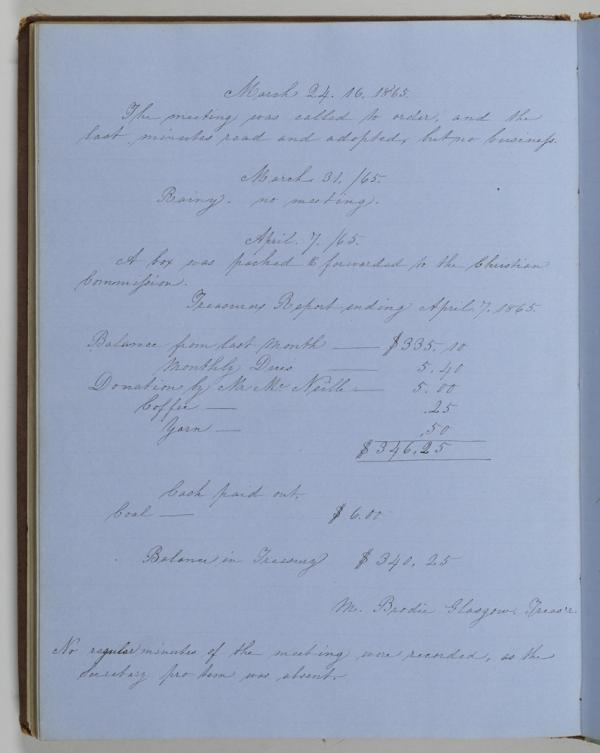 March 24. 16. 1865.
The meeting was called to order, and the
last minutes read and adopted, but no business.
March 31. /65.
Rainy. no meeting.
April. 7. /65.
A box was packed & forwarded to the Christian
Commission.
Treasurers Report ending April. 7. 1865.
Balance from last month — $335.10
Monthly Dues — 5.40
Donation by Mr Mc Neille — 5.00
Coffee — .25
Yarn — .50
$346.25
Cash paid out.
Coal — $6.00
Balance in Treasury $340.25
M. Brodie Glasgow. Treas'r.
No regular minutes of the meeting were recorded, as the
Secretary pro tem was absent.